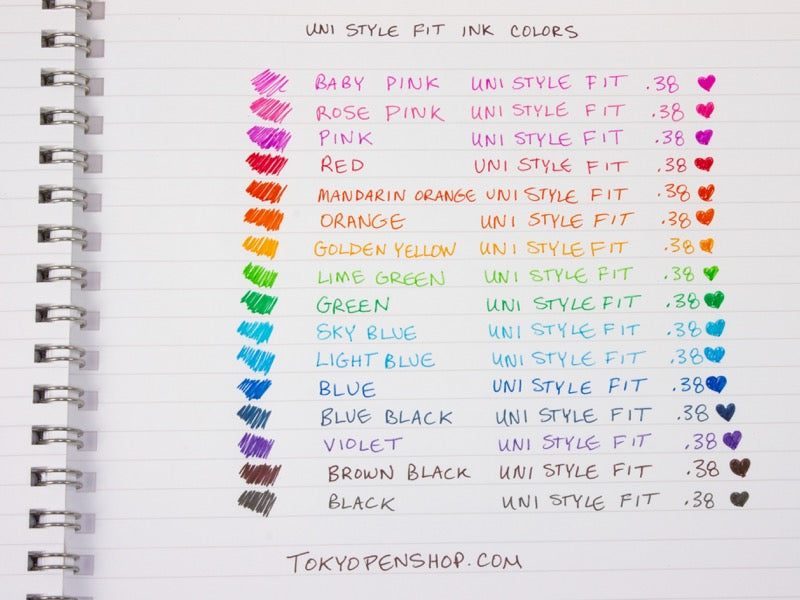 UNI STYLE FIT INK COLORS
BABY PINK UNI STYLE FIT .38
ROSE PINK UNI STYLE FIT .38
PINK UNI STYLE FIT .38
RED UNI STYLE FIT .38
MANDARIN ORANGE UNI STYLE FIT .38
ORANGE UNI STYLE FIT .38
GOLDEN YELLOW UNI STYLE FIT .38
LIME GREEN UNI STYLE FIT .38
GREEN UNI STYLE FIT .38
SKY BLUE UNI STYLE FIT .38
LIGHT BLUE UNI STYLE FIT .38
BLUE UNI STYLE FIT .38
BLUE BLACK UNI STYLE FIT .38
VIOLET UNI STYLE FIT .38
BROWN BLACK UNI STYLE FIT .38
BLACK UNI STYLE FIT .38
TOKYOPENSHOP.COM